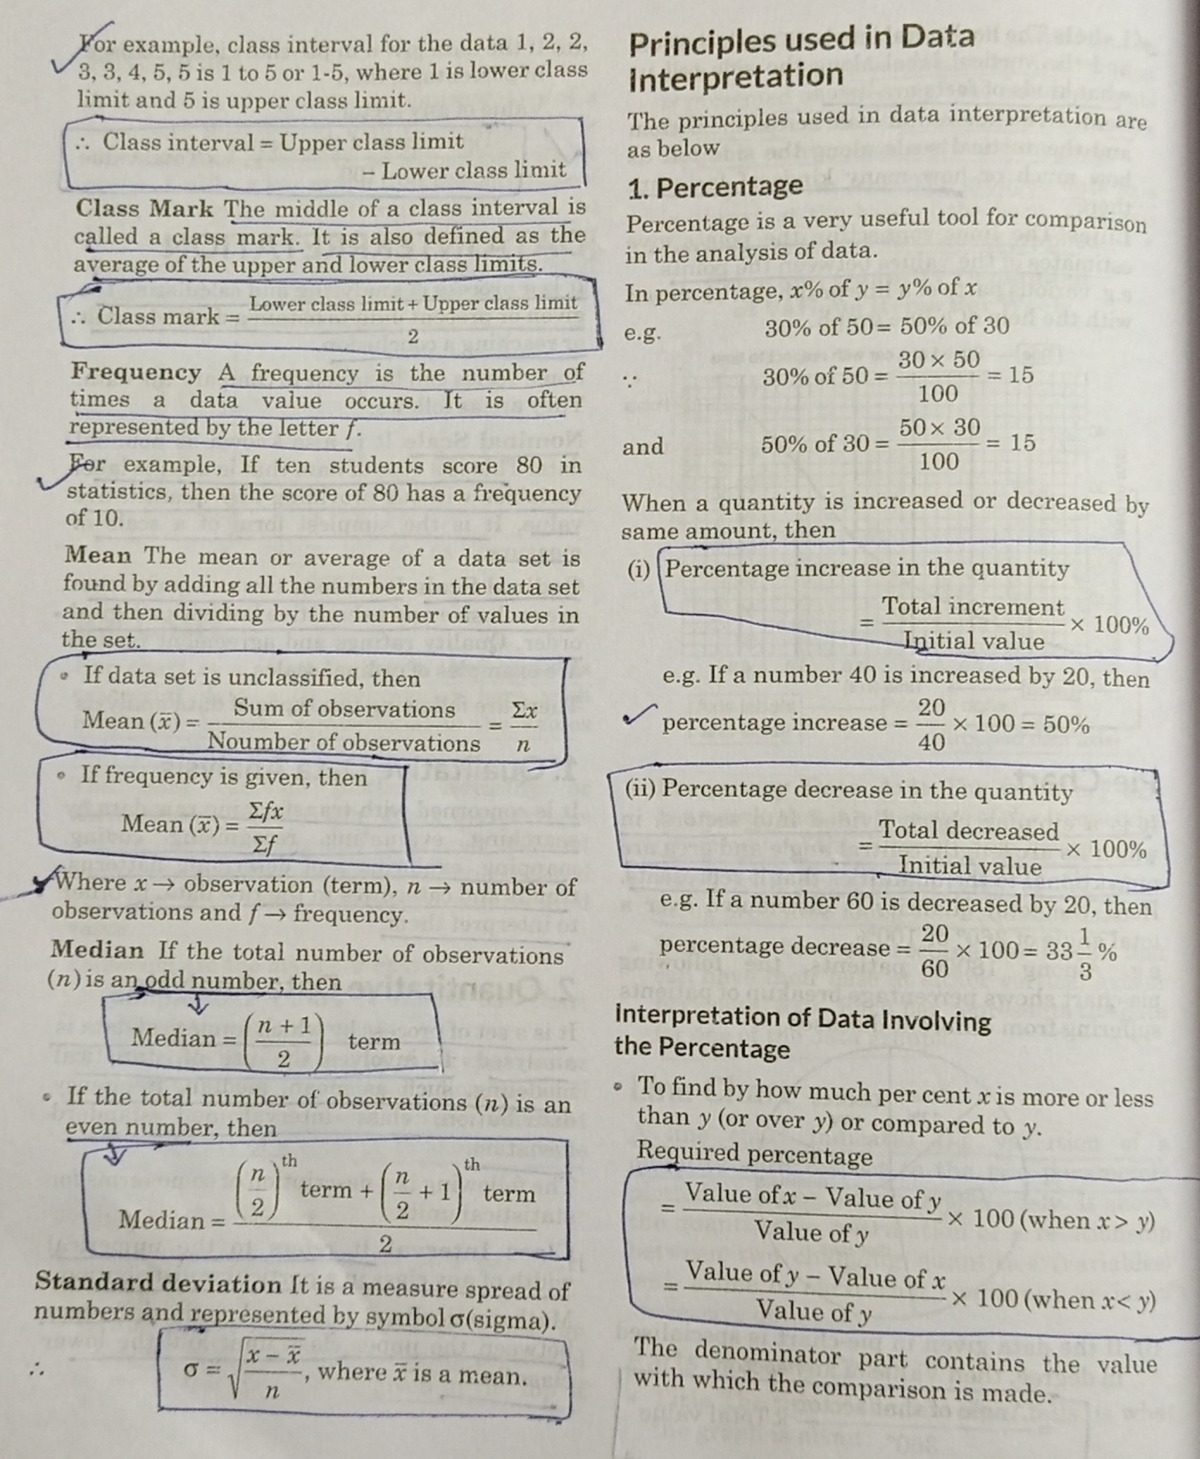 For example, class interval for the data 1, 2, 2,
3, 3, 4, 5, 5 is 1 to 5 or 1-5, where 1 is lower class
limit and 5 is upper class limit.
∴ Class interval = Upper class limit
– Lower class limit
Class Mark The middle of a class interval is
called a class mark. It is also defined as the
average of the upper and lower class limits.
∴ Class mark = (Lower class limit + Upper class limit)/2
Frequency A frequency is the number of
times a data value occurs. It is often
represented by the letter f.
For example, If ten students score 80 in
statistics, then the score of 80 has a frequency
of 10.
Mean The mean or average of a data set is
found by adding all the numbers in the data set
and then dividing by the number of values in
the set.
• If data set is unclassified, then
Mean (x̄) = Sum of observations/Noumber of observations = Σx/n
• If frequency is given, then
Mean (x̄) = Σfx/Σf
Where x → observation (term), n → number of
observations and f → frequency.
Median If the total number of observations
(n) is an odd number, then
Median = ((n + 1)/2) term
• If the total number of observations (n) is an
even number, then
Median = ((n/2)th term + (n/2 + 1)th term)/2
Standard deviation It is a measure spread of
numbers and represented by symbol σ(sigma).
∴ σ = √((x – x̄)/n), where x̄ is a mean.
Principles used in Data
Interpretation
The principles used in data interpretation are
as below
1. Percentage
Percentage is a very useful tool for comparison
in the analysis of data.
In percentage, x% of y = y% of x
e.g. 30% of 50 = 50% of 30
∵ 30% of 50 = (30 × 50)/100 = 15
and 50% of 30 = (50 × 30)/100 = 15
When a quantity is increased or decreased by
same amount, then
(i) Percentage increase in the quantity
= Total increment/Initial value × 100%
e.g. If a number 40 is increased by 20, then
percentage increase = 20/40 × 100 = 50%
(ii) Percentage decrease in the quantity
= Total decreased/Initial value × 100%
e.g. If a number 60 is decreased by 20, then
percentage decrease = 20/60 × 100 = 33 1/3 %
Interpretation of Data Involving
the Percentage
• To find by how much per cent x is more or less
than y (or over y) or compared to y.
Required percentage
= (Value of x – Value of y)/Value of y × 100 (when x > y)
= (Value of y – Value of x)/Value of y × 100 (when x < y)
The denominator part contains the value
with which the comparison is made.